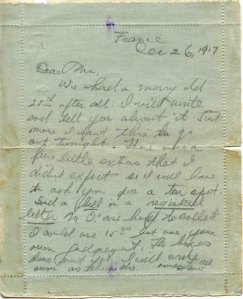 France
Dec 26, 1917
Dear Ma,
We had a merry old
25th after all. I will write
and tell you about it. Just
now I want this to go
out tonight. There were a
few little extras that I
didn't expect so I will have
to ask you for a ten spot.
Send a bill in a registered
letter. M.O.'s are hard to collect.
I could use 15.00 but use your
own judgment. The
have I could write
soon as